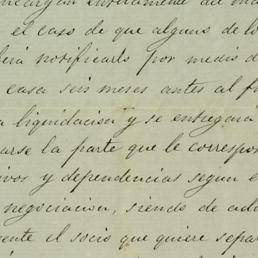 encargan enteramente de
el caso de que alguno de lo
berá notificarlo por medio d
casa seis meses antes al f
a liquidacion y se entregará
arse la parte que le correspo
ivos y dependencias segun e
negociacion, siendo de ad
ente el socio que quiere sepa